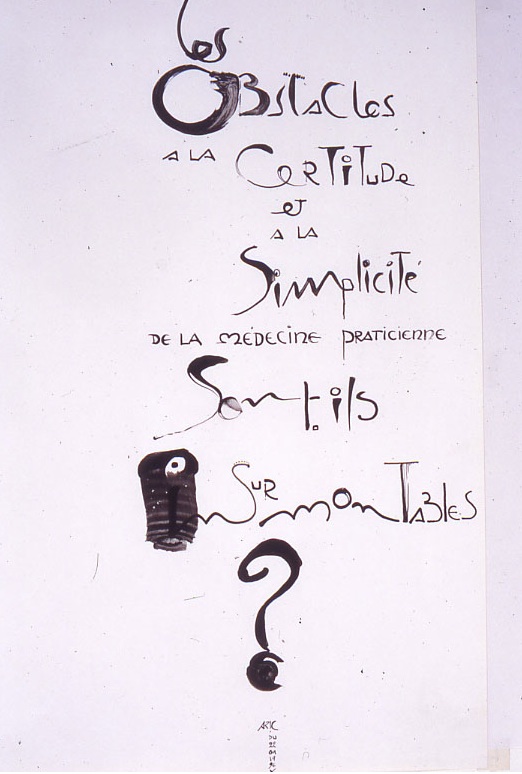 Les
ObstacLes
A LA CeRTiTuDe
et
A LA
Simplicité
DE LA MÉDECINE PRATICIENNE
Sont-ils
InSURmonTABLeS
?